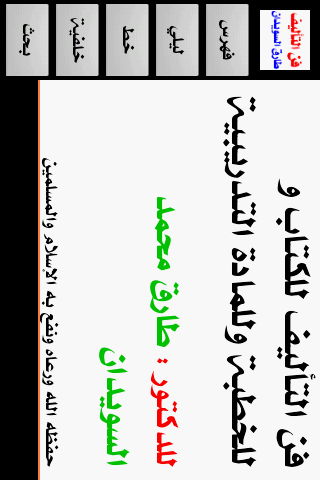 فن التأليف
طارق السويدان
فهرس
ليلي
خط
خلفية
بحث
فن التأليف للكتاب و
للخطبة وللمادة التدريبية
للدكتور : طارق محمد
السويدان
حفظه الله ورعاه ونفع به الإسلام والمسلمين